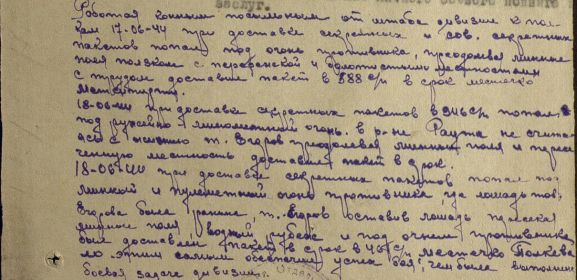 заслуг.
Работая конным посыльным от штаба дивизии к пол-
кам 17-06-44 при доставке секретных и сов. секретных
пакетов попал под огонь противника, преодолевая минные
поля ползком с перебежкой и болотистыми местностями
с трудом доставил пакет в 588 с/п в срок местечко
18-06-44 при доставке секретных пакетов в 946 с/п попал
под ружейно минометный огонь. в р-не Раута не считая
ась с жизнью т. Егоров преодолевая минный поля и пересе
ченную местность доставил пакет в срок.
18-06-44 при доставке секретных пакетов попал под
минный и пулеметный огонь противника, где лошадь тов.
Егорова была ранена, т. Егоров оставив лошадь пересекая
минное поля, водный рубеж и под огнем противника
был доставлен пакет в срок в 46 с/п местечко
ло этим самым обеспечил успех боя, чем было выполне
боевая задача дивизии.